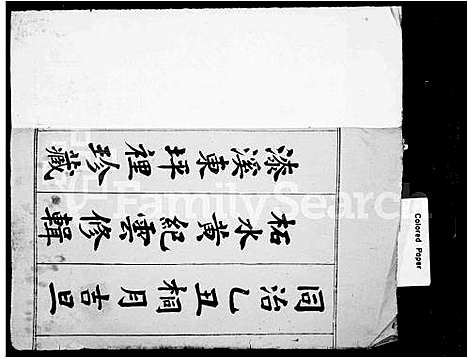 同治乙丑桐月吉旦
柘水黃紀雲修輯
漆溪東坪裡珍藏
Colored Paper
FamilySearch